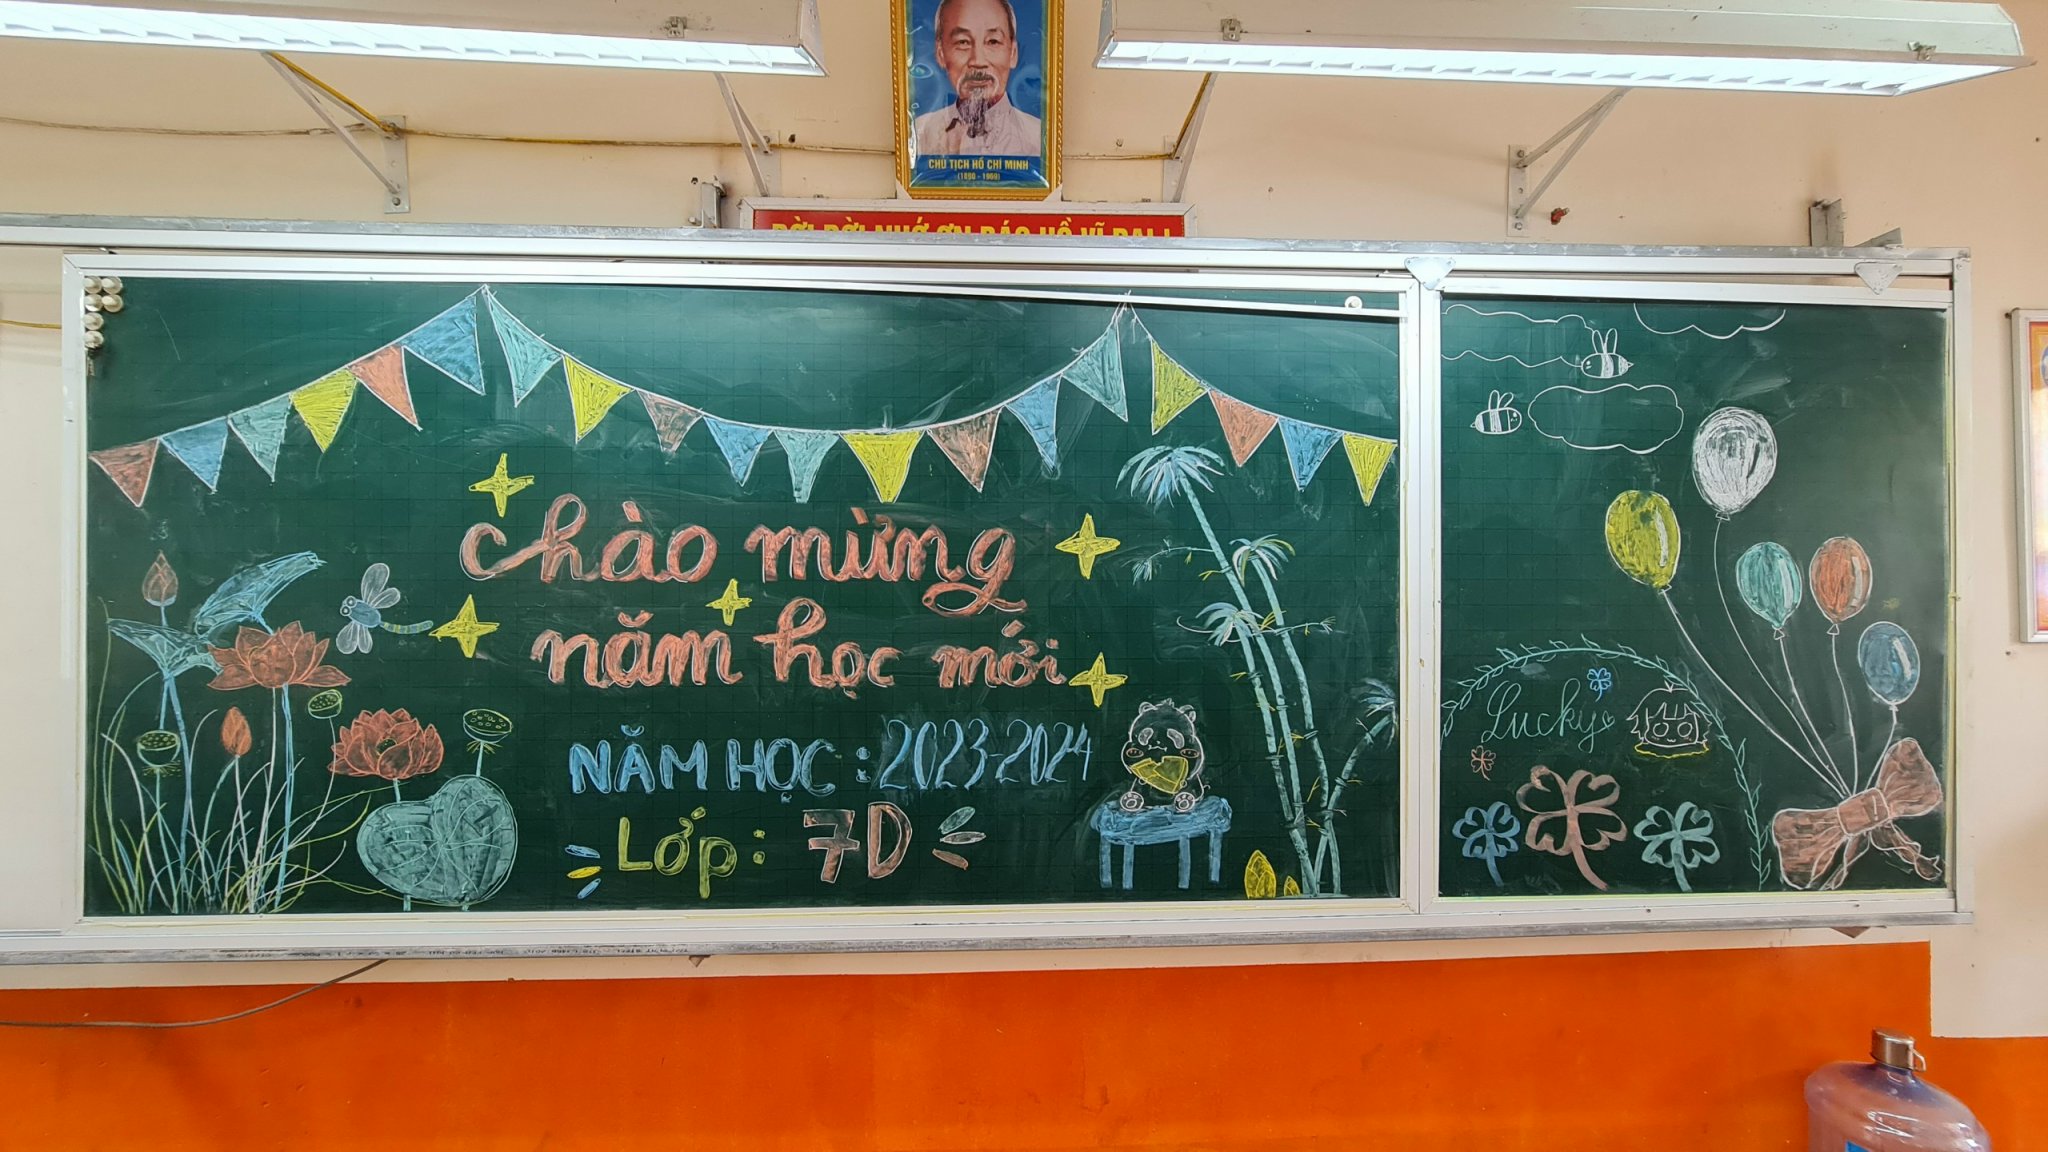 CHỦ TỊCH HỒ CHÍ MINH
(1890 - 1969)
ĐỜI ĐỜI NHỚ ƠN BÁC HỒ VĨ ĐẠI !
chào mừng
năm học mới
NĂM HỌC : 2023-2024
Lớp: 7D
Lucky